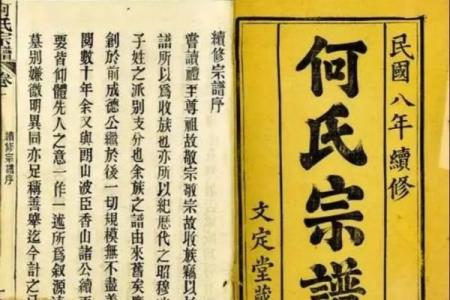 民國八年續修
何氏宗譜
文定堂
續修宗譜序
嘗讀禮至尊祖故敬宗敬宗故收族竊以
譜所以為收族也亦所以紀歷代之昭穆
子姓之派別支分也余族之譜由來舊矣
創於前成德公繼於後一切規模無不盡善
閱數十年余又與山波臣香山諸公續
要皆仰體先人之意一作一述所為叙源
墓別嫌微明異同亦足稱善舉迄今計之
何氏宗譜 卷
續修宗譜序